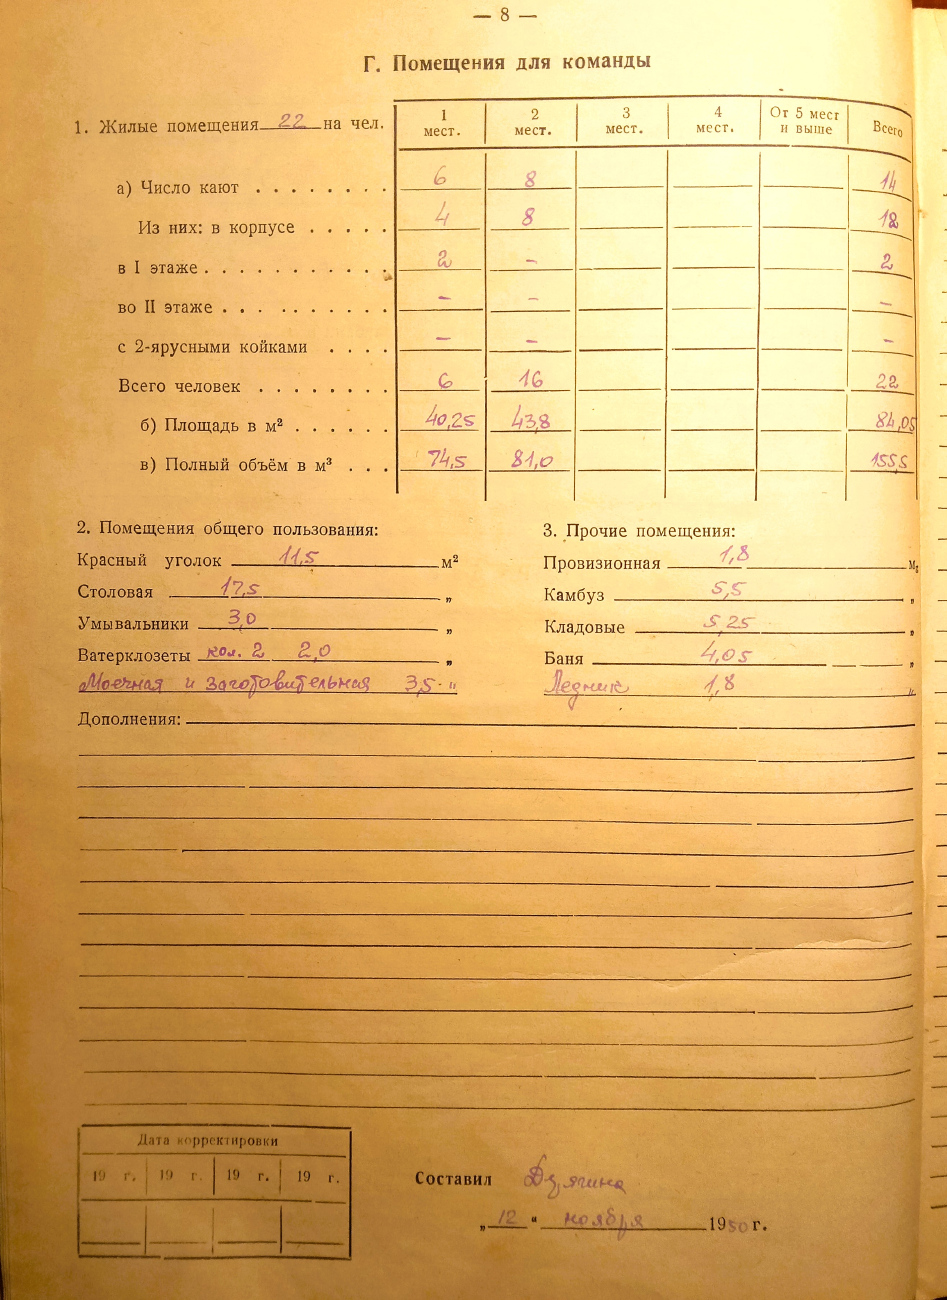 — 8 —
Г. Помещения для команды
1. Жилые помещения 22 на чел.
1 мест. 2 мест. 3 мест. 4 мест. От 5 мест и выше Всего
а) Число кают . . . . . . . . 6 8 14
Из них: в корпусе . . . . . 4 8 12
в I этаже . . . . . . . . . . . 2 – 2
во II этаже . . . . . . . . . . – – –
с 2-ярусными койками . . . . – – –
Всего человек . . . . . . . . 6 16 22
б) Площадь в м² . . . . . . 40,25 43,8 84,05
в) Полный объём в м³ . . . 74,5 81,0 155,5
2. Помещения общего пользования:
Красный уголок 11,5 м²
Столовая 17,5 „
Умывальники 3,0 „
Ватерклозеты кол. 2 2,0 „
Моечная и заготовительная 3,5 "
3. Прочие помещения:
Провизионная 1,8 м²
Камбуз 5,5 „
Кладовые 5,25 „
Баня 4,05 „
Ледник 1,8 "
Дополнения:
Дата корректировки
19 г. 19 г. 19 г. 19 г.
Составил
„ 12 “ ноября 1950 г.